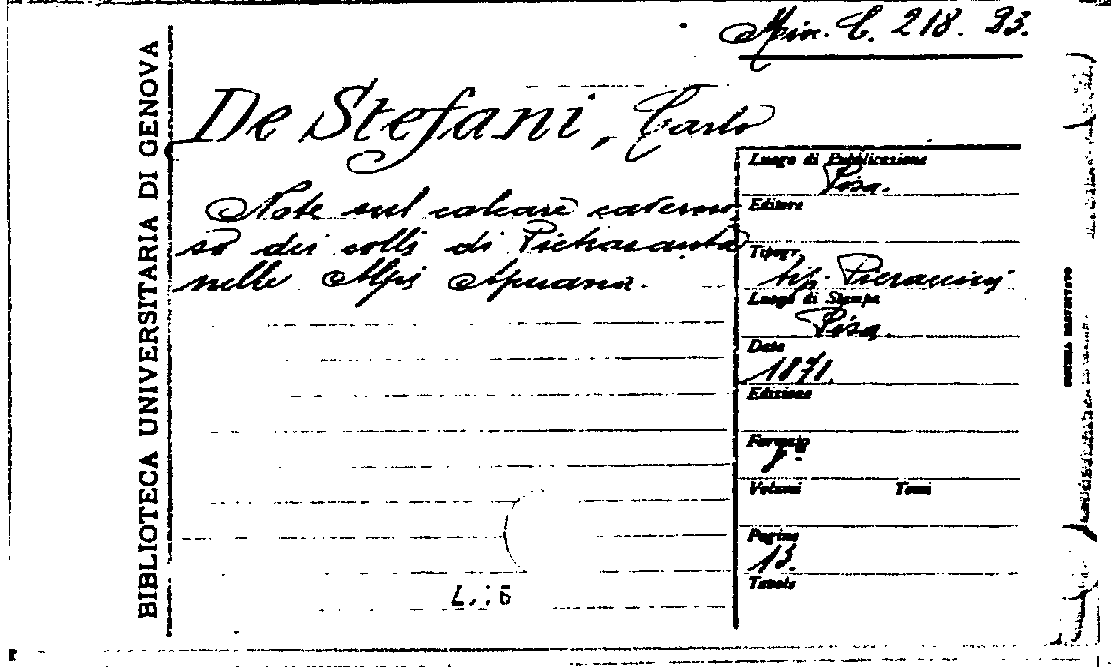 Min. C. 218. 23.
BIBLIOTECA UNIVERSITARIA DI GENOVA
De Stefani, Carlo
Note sul calcare caverno
so dei colli di Pietrasanta
nelle Alpi Apuane.
Luogo di Pubblicazione
Pisa.
Editore
Tipogr.
tip. Pieraccini
Luogo di Stampa
Pisa.
Data
1871.
Edizione
Formato
Volumi Tomi
Pagine
13.
Tavole